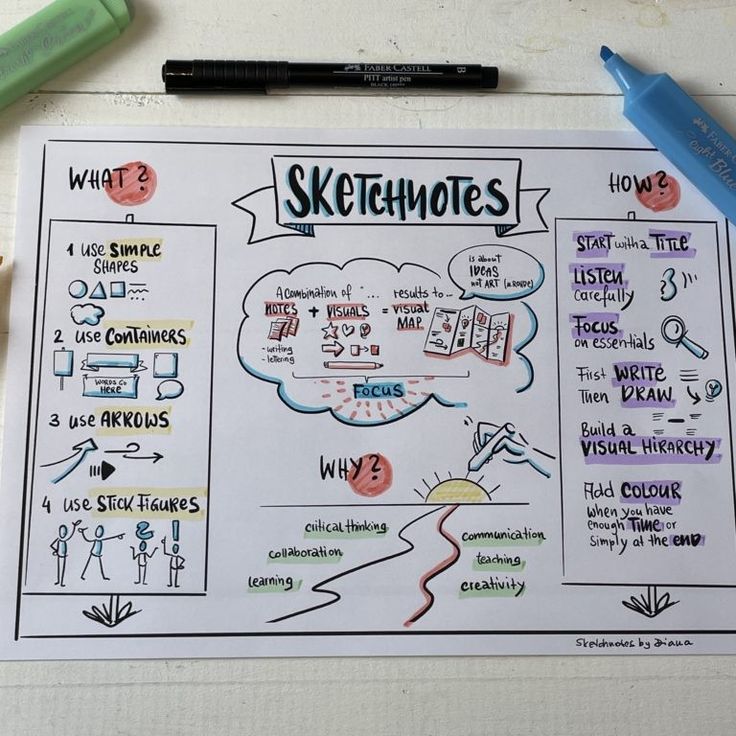 FABER-CASTELL
PITT artist pen
B
SKETCHNOTES
WHAT?
1 USE SIMPLE
SHAPES
2 USE CONTAINERS
WORDS GO
HERE
3 USE ARROWS
4 USE STICK FIGURES
A combination of "... results to...
NOTES + VISUALS = visual
MAP
- writing
- lettering
FOCUS
is about
IDEAS
not ART (M.ROHDE)
WHY?
critical thinking
collaboration
learning
communication
teaching
creativity
HOW?
START with a TITLE
LISTEN
carefully
FOCUS
on essentials
First WRITE
Then DRAW
Build a
VISUAL HIRARCHY
Add COLOUR
when you have
enough TIME or
simply at the END
Sketchnotes by Diana